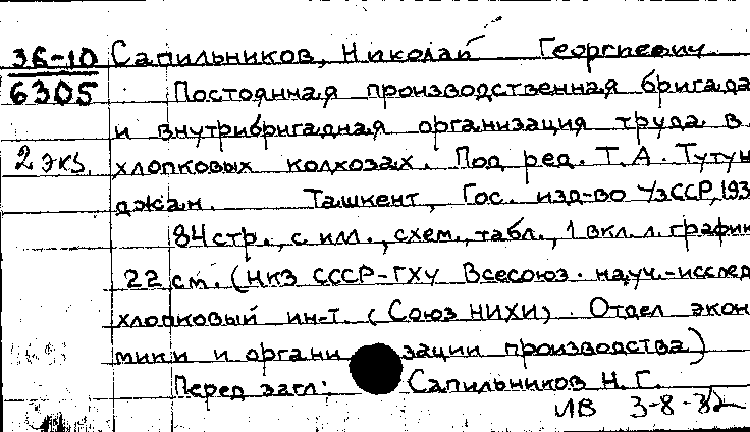 36-10 Сапильников, Николай Георгиевич.
6305 Постоянная производственная бригада
и внутрибригадная организация труда в
2 экз. хлопковых колхозах. Под ред. Т. А. Тутун
джан. Ташкент, Гос. изд-во УзССР, 193
84 стр., с илл., схем., табл., 1 вкл. л. график
22 см. (НКЗ СССР-ГХУ Всесоюз. науч.-исслед
хлопковый ин-т. (Союз НИХИ). Отдел экон
мики и органи зации производства)
Перед загл: Сапильников Н. Г.
ИВ 3-8-32